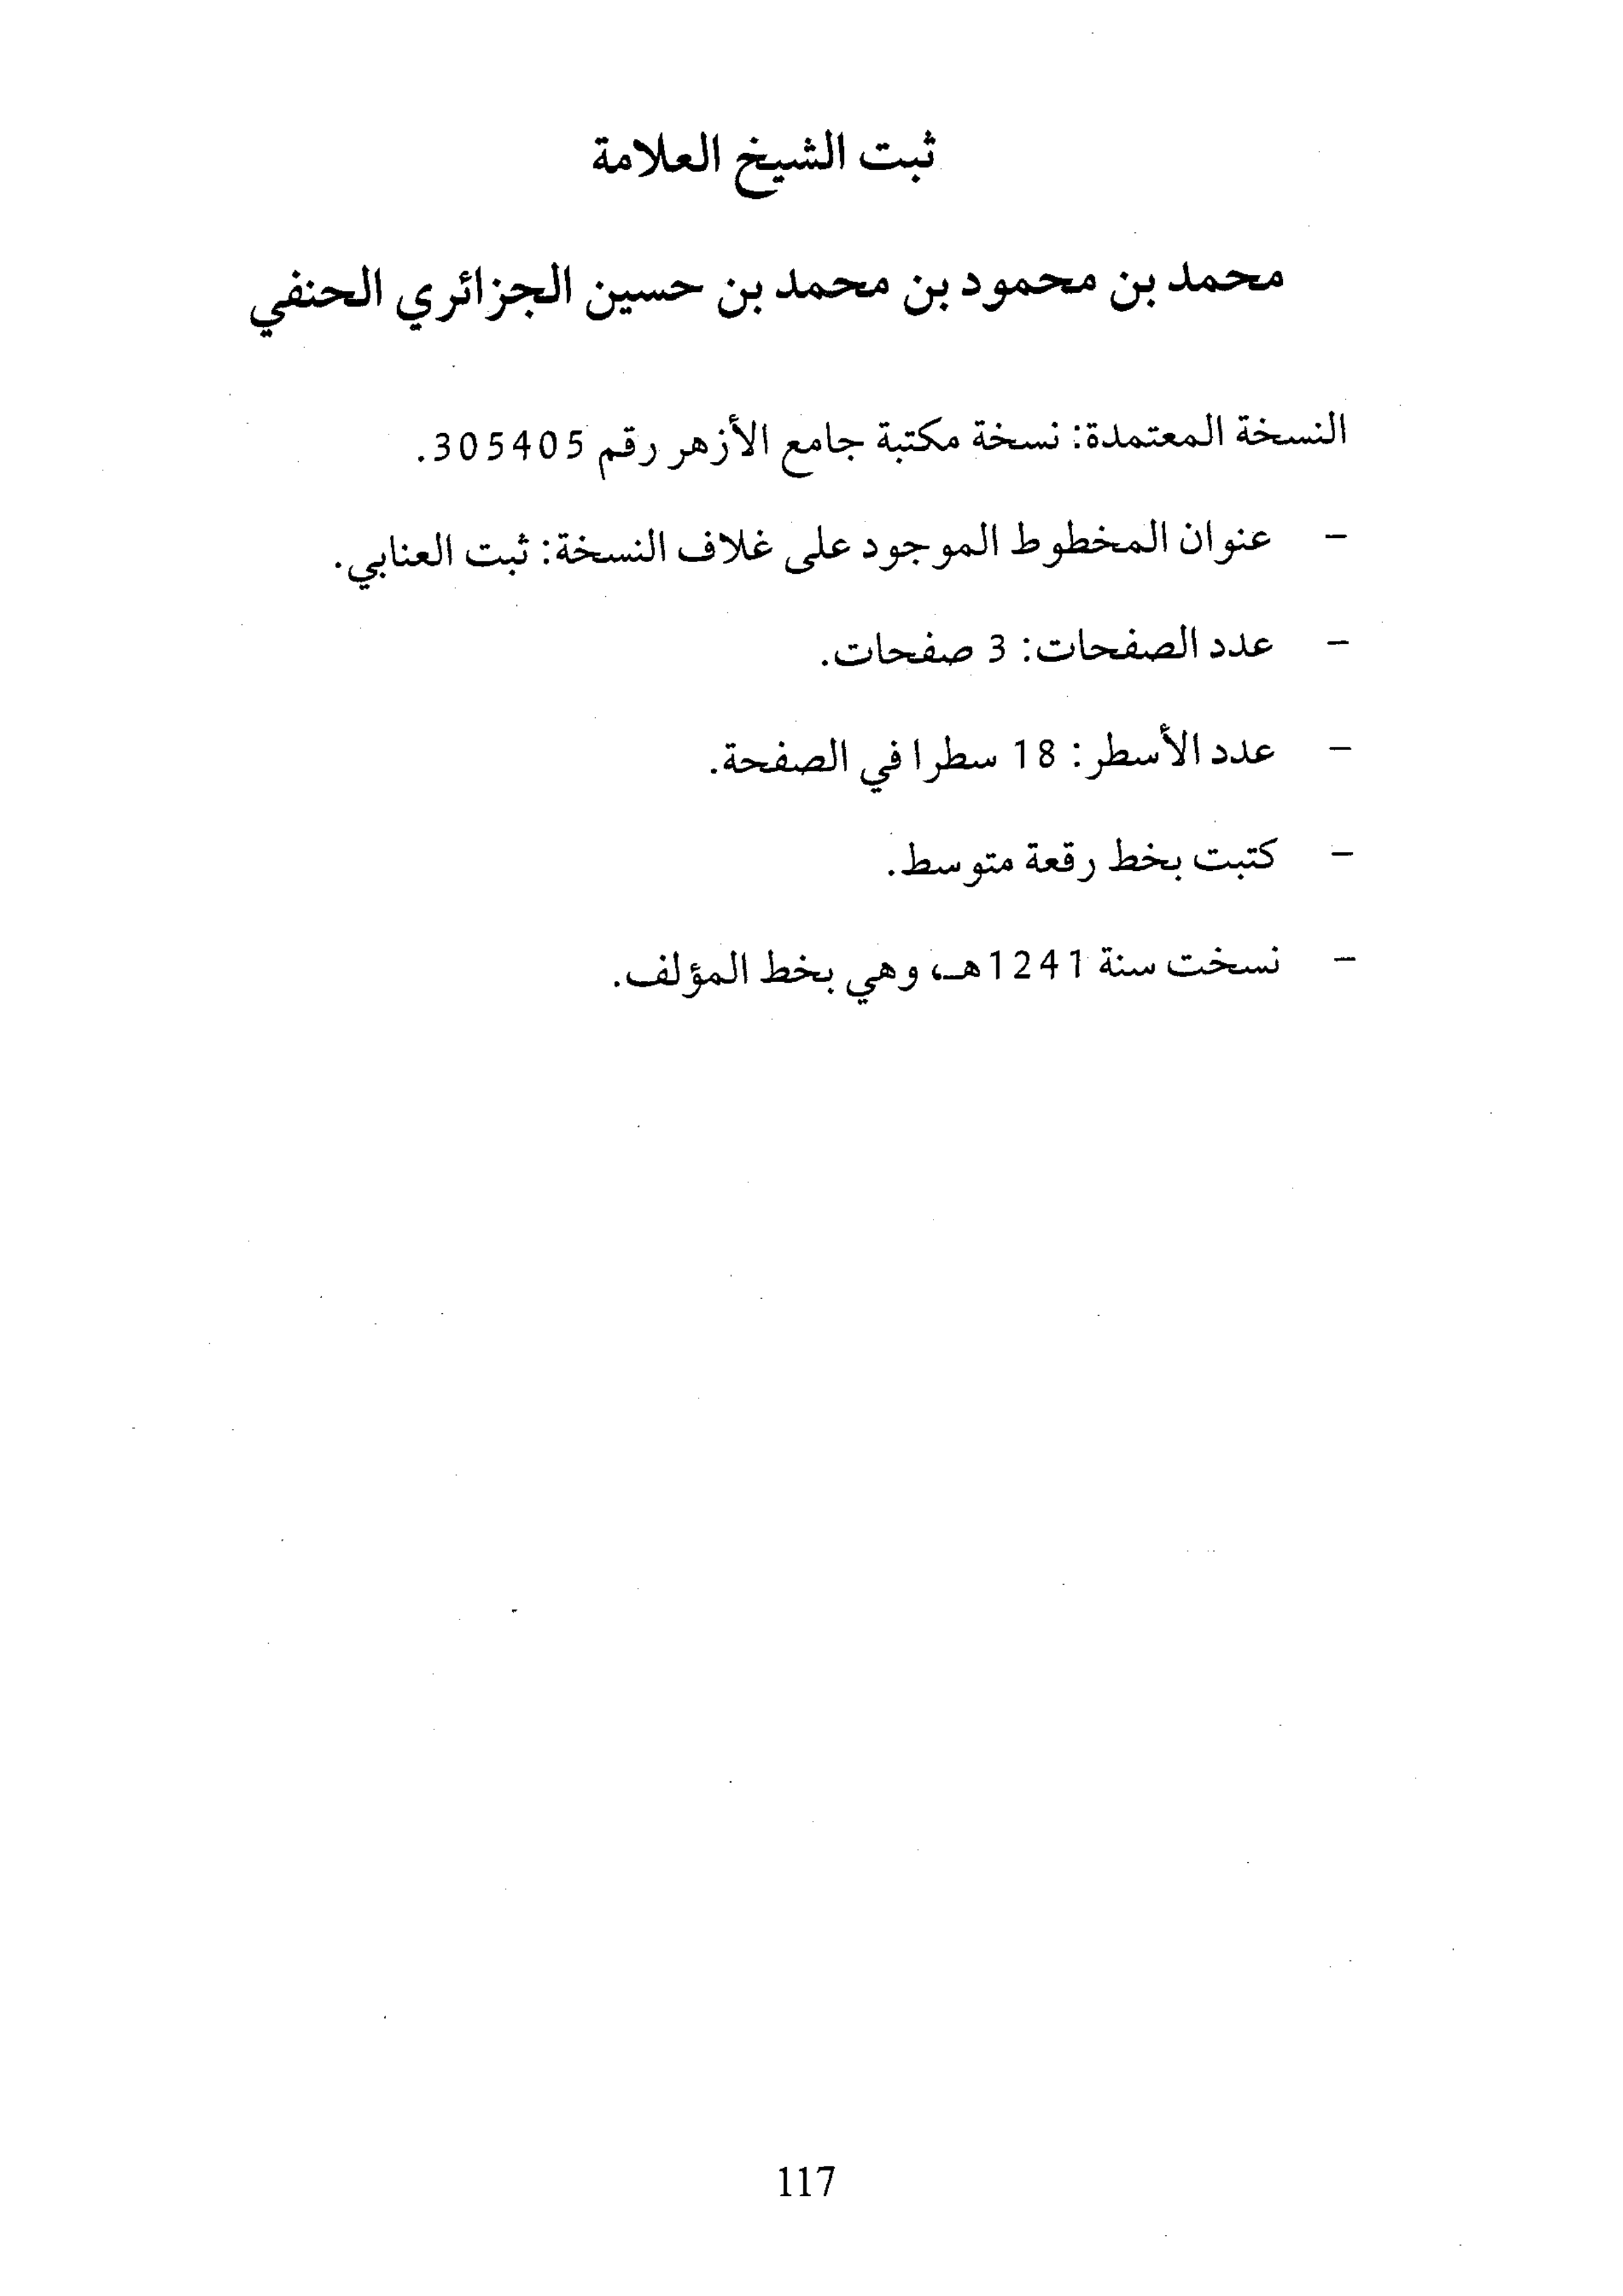 ثبت الشيخ العلامة
محمد بن محمود بن محمد بن حسين الجزائري الحنفي
النسخة المعتمدة: نسخة مكتبة جامع الأزهر رقم 305405.
- عنوان المخطوط الموجود على غلاف النسخة: ثبت العنابي.
- عدد الصفحات: 3 صفحات.
- عدد الأسطر: 18 سطرا في الصفحة.
- كتبت بخط رقعة متوسط.
- نسخت سنة 1241هـ، وهي بخط المؤلف.
117